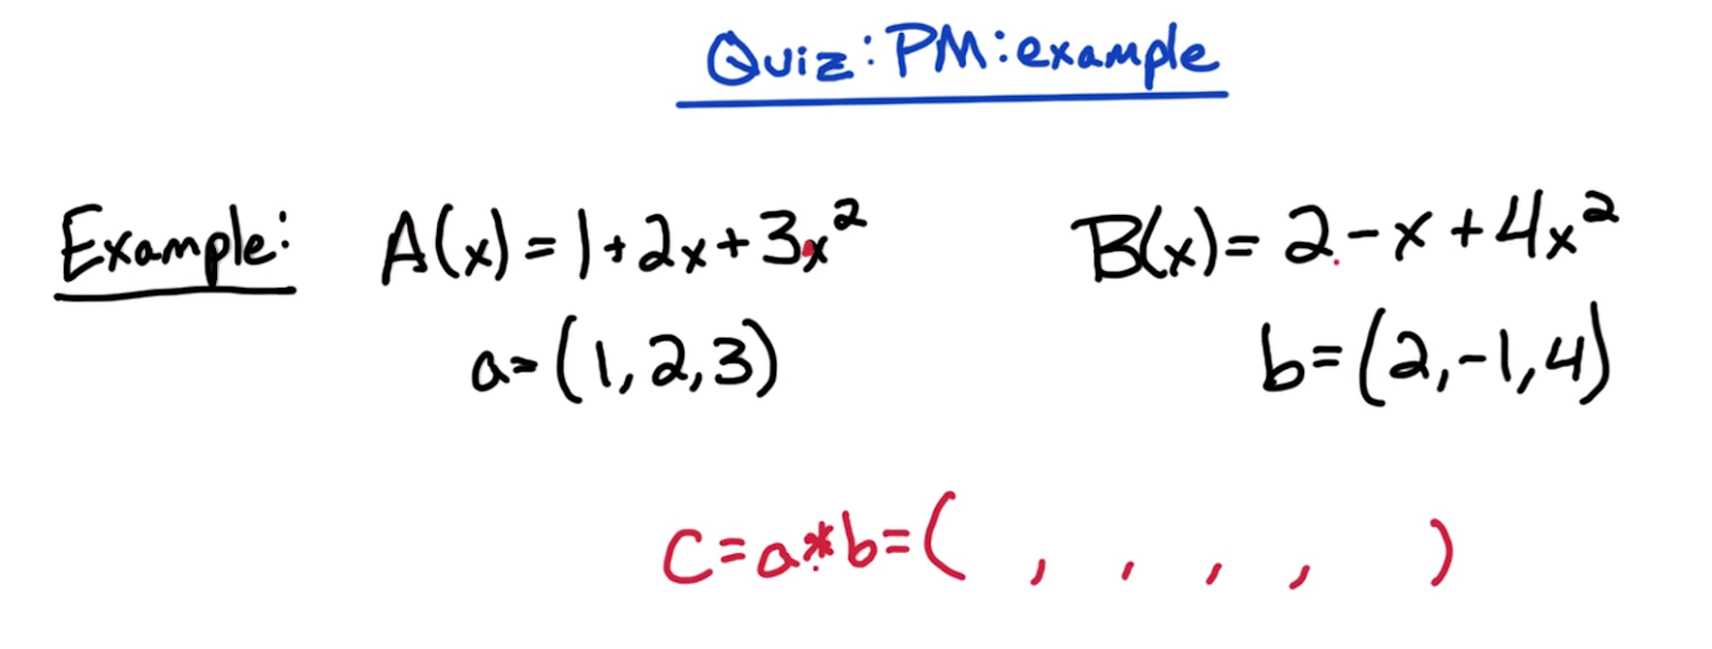 Quiz: PM: example
Example: A(x) = 1 + 2x + 3x² B(x) = 2 - x + 4x²
a = (1, 2, 3) b = (2, -1, 4)
c = a * b = ( , , , , )